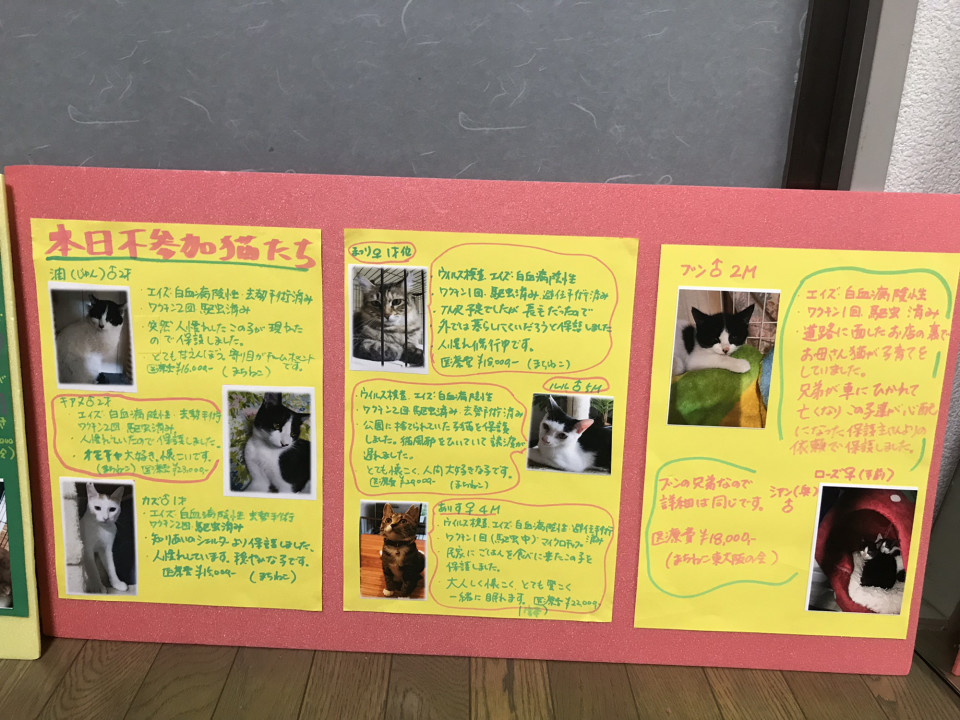 本日不参加猫たち
潤(じゅん)♂2才
エイズ・白血病陰性 去勢手術済み
ワクチン2回 駆虫済み
突然、人慣れしたこの子が現れた
ので保護しました。
とても甘えんぼう、寄り目がチャームポイント
です。
医療費¥16,000-(まちねこ)
♂2才
エイズ・白血病陰性 去勢手術
ワクチン2回 駆虫済み
・人慣れしていたので保護しました。
・オモチャ大好き、懐こいです。
(まちねこ) 医療費¥23,000-
カズ♂1才
・エイズ・白血病陰性 去勢手術
ワクチン2回・駆虫済み
・知りあいのシェルターより保護しました。
・人慣れしています。穏やかな子です。
医療費¥15,000- (まちねこ)
♀1才位
ウイルス検査、エイズ・白血病陰性
ワクチン1回、駆虫済み、避妊手術済み
TNR予定でしたが長毛だったので
外では暮らしてくいだろうと保護しました
人慣れ修行中です。
医療費¥18,000-(まちねこ)
ルル♂5M
・ウイルス検査、エイズ・白血病陰性
・ワクチン2回 駆虫済み 去勢手術済み
・公園に捨てられていた子猫を保護
しました。猫風邪をひいていて
遅れました。
とても懐こく、人間大好きな子です。
医療費¥29,000- (まちねこ)
ありす♀4M
・ウイルス検査 エイズ・白血病陰性 避妊手術
・ワクチン1回(駆虫中)マイクロチップ 済み
・民家にごはんを食べに来たこの子を
保護しました。
・大人しく懐こく、とても賢こく
一緒に眠れます。 医療費¥22,000-
ブン♂2M
・エイズ・白血病陰性
・ワクチン1回、駆虫 済み
・道路に面したお店の裏で
お母さん猫が子育てを
していました。
兄弟が車にひかれて
亡くなり この子達が心配
になった保護主さんよりの
依頼で保護しました。
ブンの兄弟なので
詳細は同じです。
医療費¥18,000-
(まちねこ東大阪の会)
ローズ♀(手前)
シアン(奥)